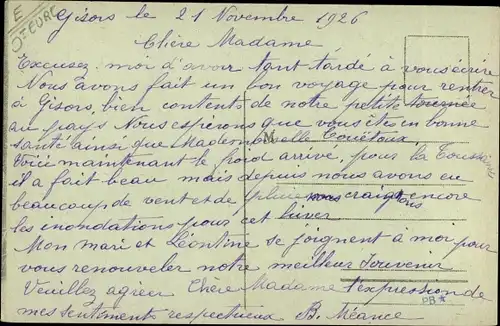 E
Gisors le 21 Novembre 1926
Chère Madame
Excusez, moi d'avoir tant tardé à vous écrire
Nous avons fait un bon voyage pour rentrer
à Gisors, bien contents de notre petite tournée
au pays Nous espérons que vous êtes en bonne
santé ainsi que Mademoiselle
Voici maintenant le froid arrivé, pour la Toussaint
il a fait beau mais depuis nous avons eu
beaucoup de vent et de pluie nous craignons encore
les inondations pour cet hiver
Mon mari et Léontine se joignent à moi pour
vous renouveler notre meilleur Souvenir
Veuillez agréer Chère Madame l'expression de
mes sentiments respectueux B. Méance
PB